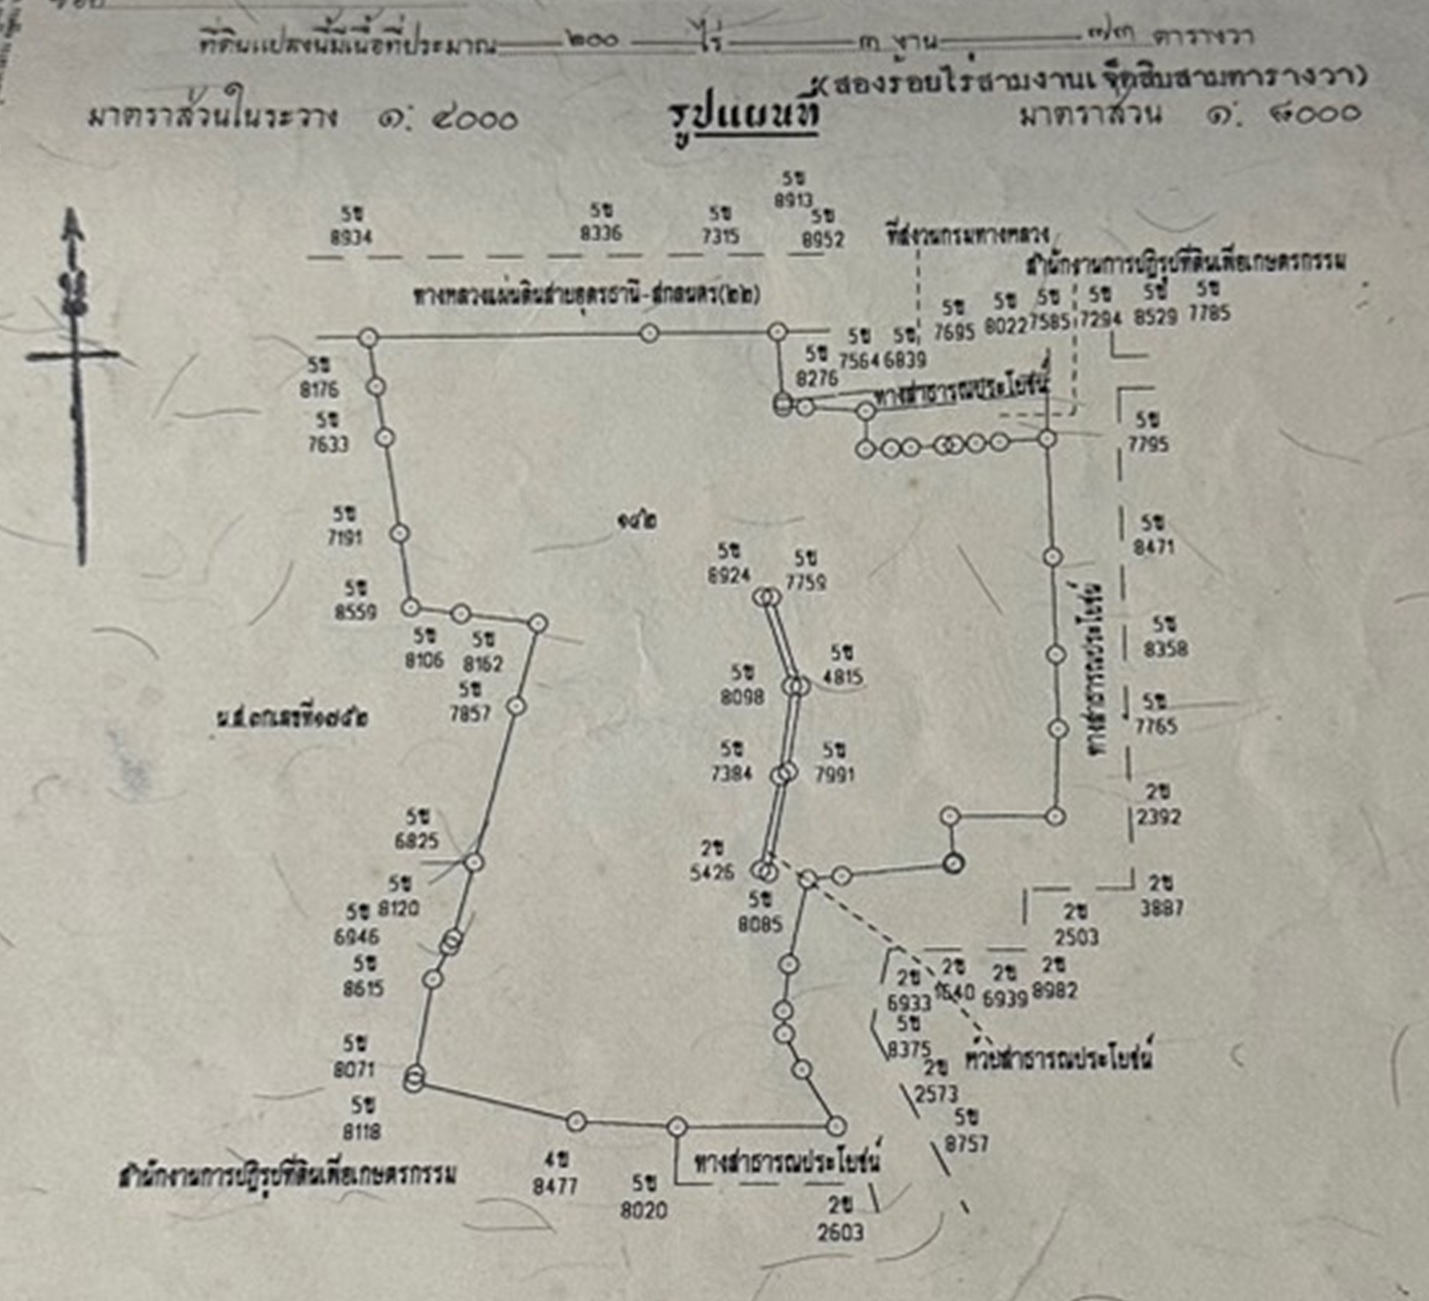 ที่ดินแปลงนี้มีเนื้อที่ประมาณ ๒๐๐ ไร่ ๓ งาน ๗๓ ตารางวา
(สองร้อยไร่สามงานเจ็ดสิบสามตารางวา)
มาตราส่วนในระวาง ๑: ๔๐๐๐ รูปแผนที่ มาตราส่วน ๑: ๘๐๐๐
5ข 8913
5ข 8934
5ข 8336
5ข 7315
5ข 8952
ที่สงวนกรมทางหลวง
สำนักงานการปฏิรูปที่ดินเพื่อเกษตรกรรม
ทางหลวงแผ่นดินสายอุดรธานี-สกลนคร(๒๒)
5ข 7695
5ข 8022
5ข 7585
5ข 7294
5ข 8529
5ข 7785
5ข 8276
5ข 7564
5ข 6839
ทางสาธารณประโยชน์
5ข 8176
5ข 7633
5ข 7795
5ข 7191
๑๔๒
5ข 8471
5ข 8924
5ข 7759
5ข 8559
5ข 8106
5ข 8162
5ข 8358
ทางสาธารณประโยชน์
5ข 7857
5ข 8098
5ข 4815
5ข 7765
น.ส.๓ก.เลขที่๑๗๕๒
5ข 7384
5ข 7991
2ข 2392
5ข 6825
2ข 5426
5ข 8120
5ข 8085
2ข 3887
5ข 6946
2ข 2503
5ข 8615
2ข 6933
2ข 1640
2ข 6939
2ข 8982
5ข 8375
ห้วยสาธารณประโยชน์
5ข 8071
2ข 2573
5ข 8118
5ข 8757
สำนักงานการปฏิรูปที่ดินเพื่อเกษตรกรรม
4ข 8477
5ข 8020
ทางสาธารณประโยชน์
2ข 2603